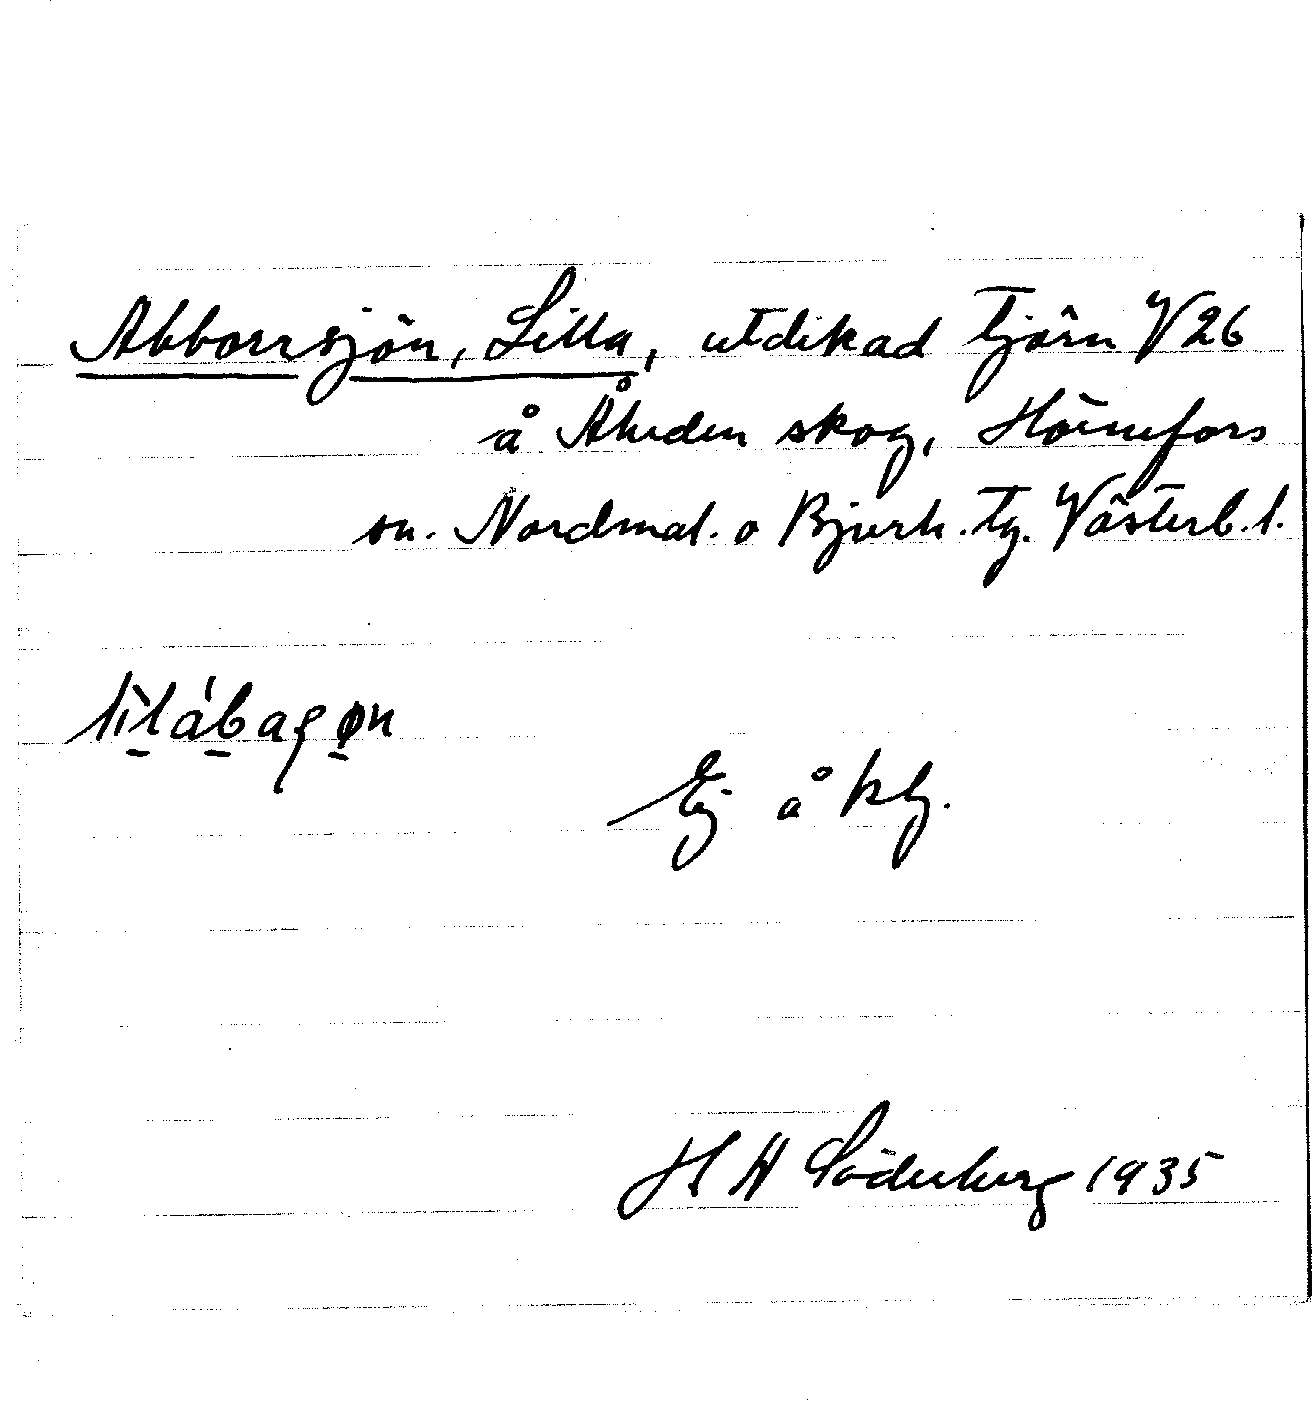 Abborrsjön, Lilla, utdikad tjärn V26
å Åheden skog, Hörnefors
sn. Nordmal. o Bjurh. tg. Västerb. l.
Ej å kbj.
H H Söderberg 1935